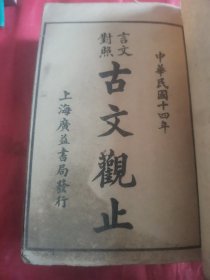 中華民國十四年
言文
對照
古文觀止
上海廣益書局發行